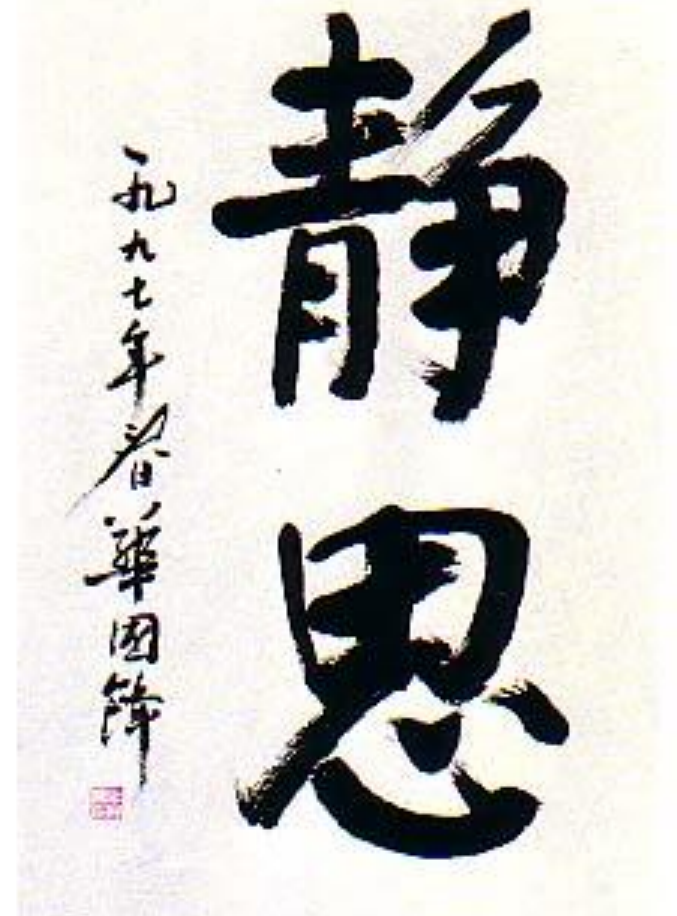 靜思
一九九七年春華國鋒